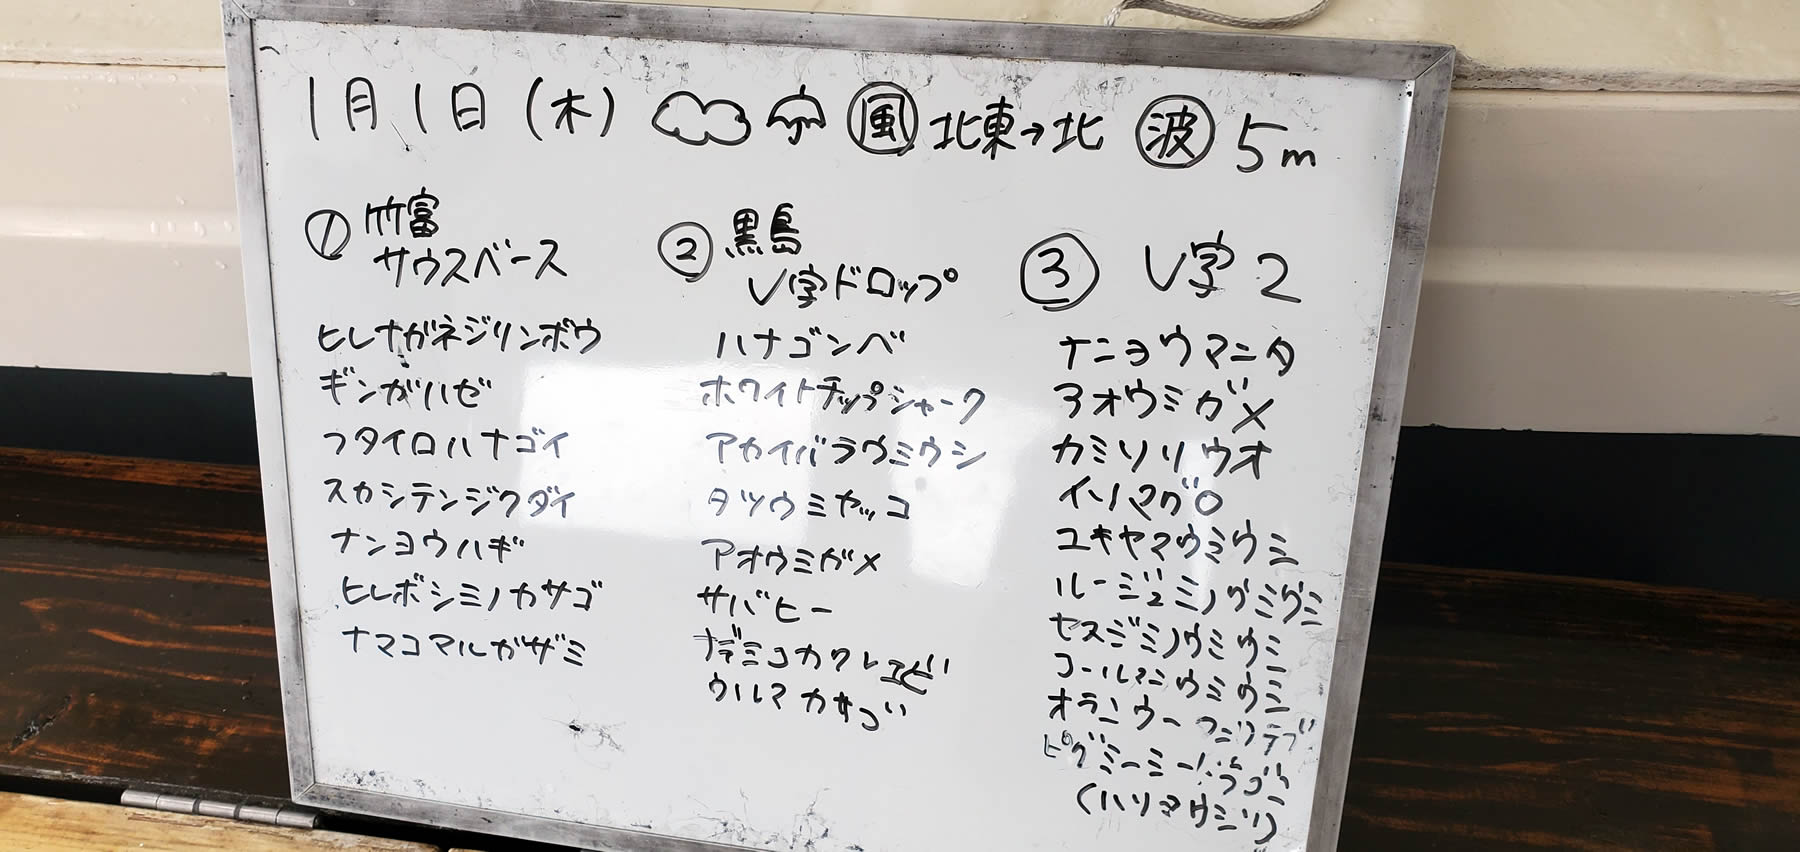 1月1日(木) 風 北東→北 波 5m
① 竹富
サウスベース
ヒレナガネジリンボウ
ギンガハゼ
フタイロハナゴイ
スカシテンジクダイ
ナンヨウハギ
ヒレボシミノカサゴ
ナマコマルガザミ
② 黒島
V字ドロップ
ハナゴンベ
ホワイトチップシャーク
アカイバラウミウシ
タツウミヤッコ
アオウミガメ
サバヒー
ナデシコカクレエビ
ウルマカサゴ
③ V字2
ナンヨウマンタ
アオウミガメ
カミソリウオ
イソマグロ
ユキヤマウミウシ
ルージュミノウミウシ
セスジミノウミウシ
コールマンウミウシ
オランウータンクラブ
ピグミーシードラゴン
(ハリマウシヅノ)